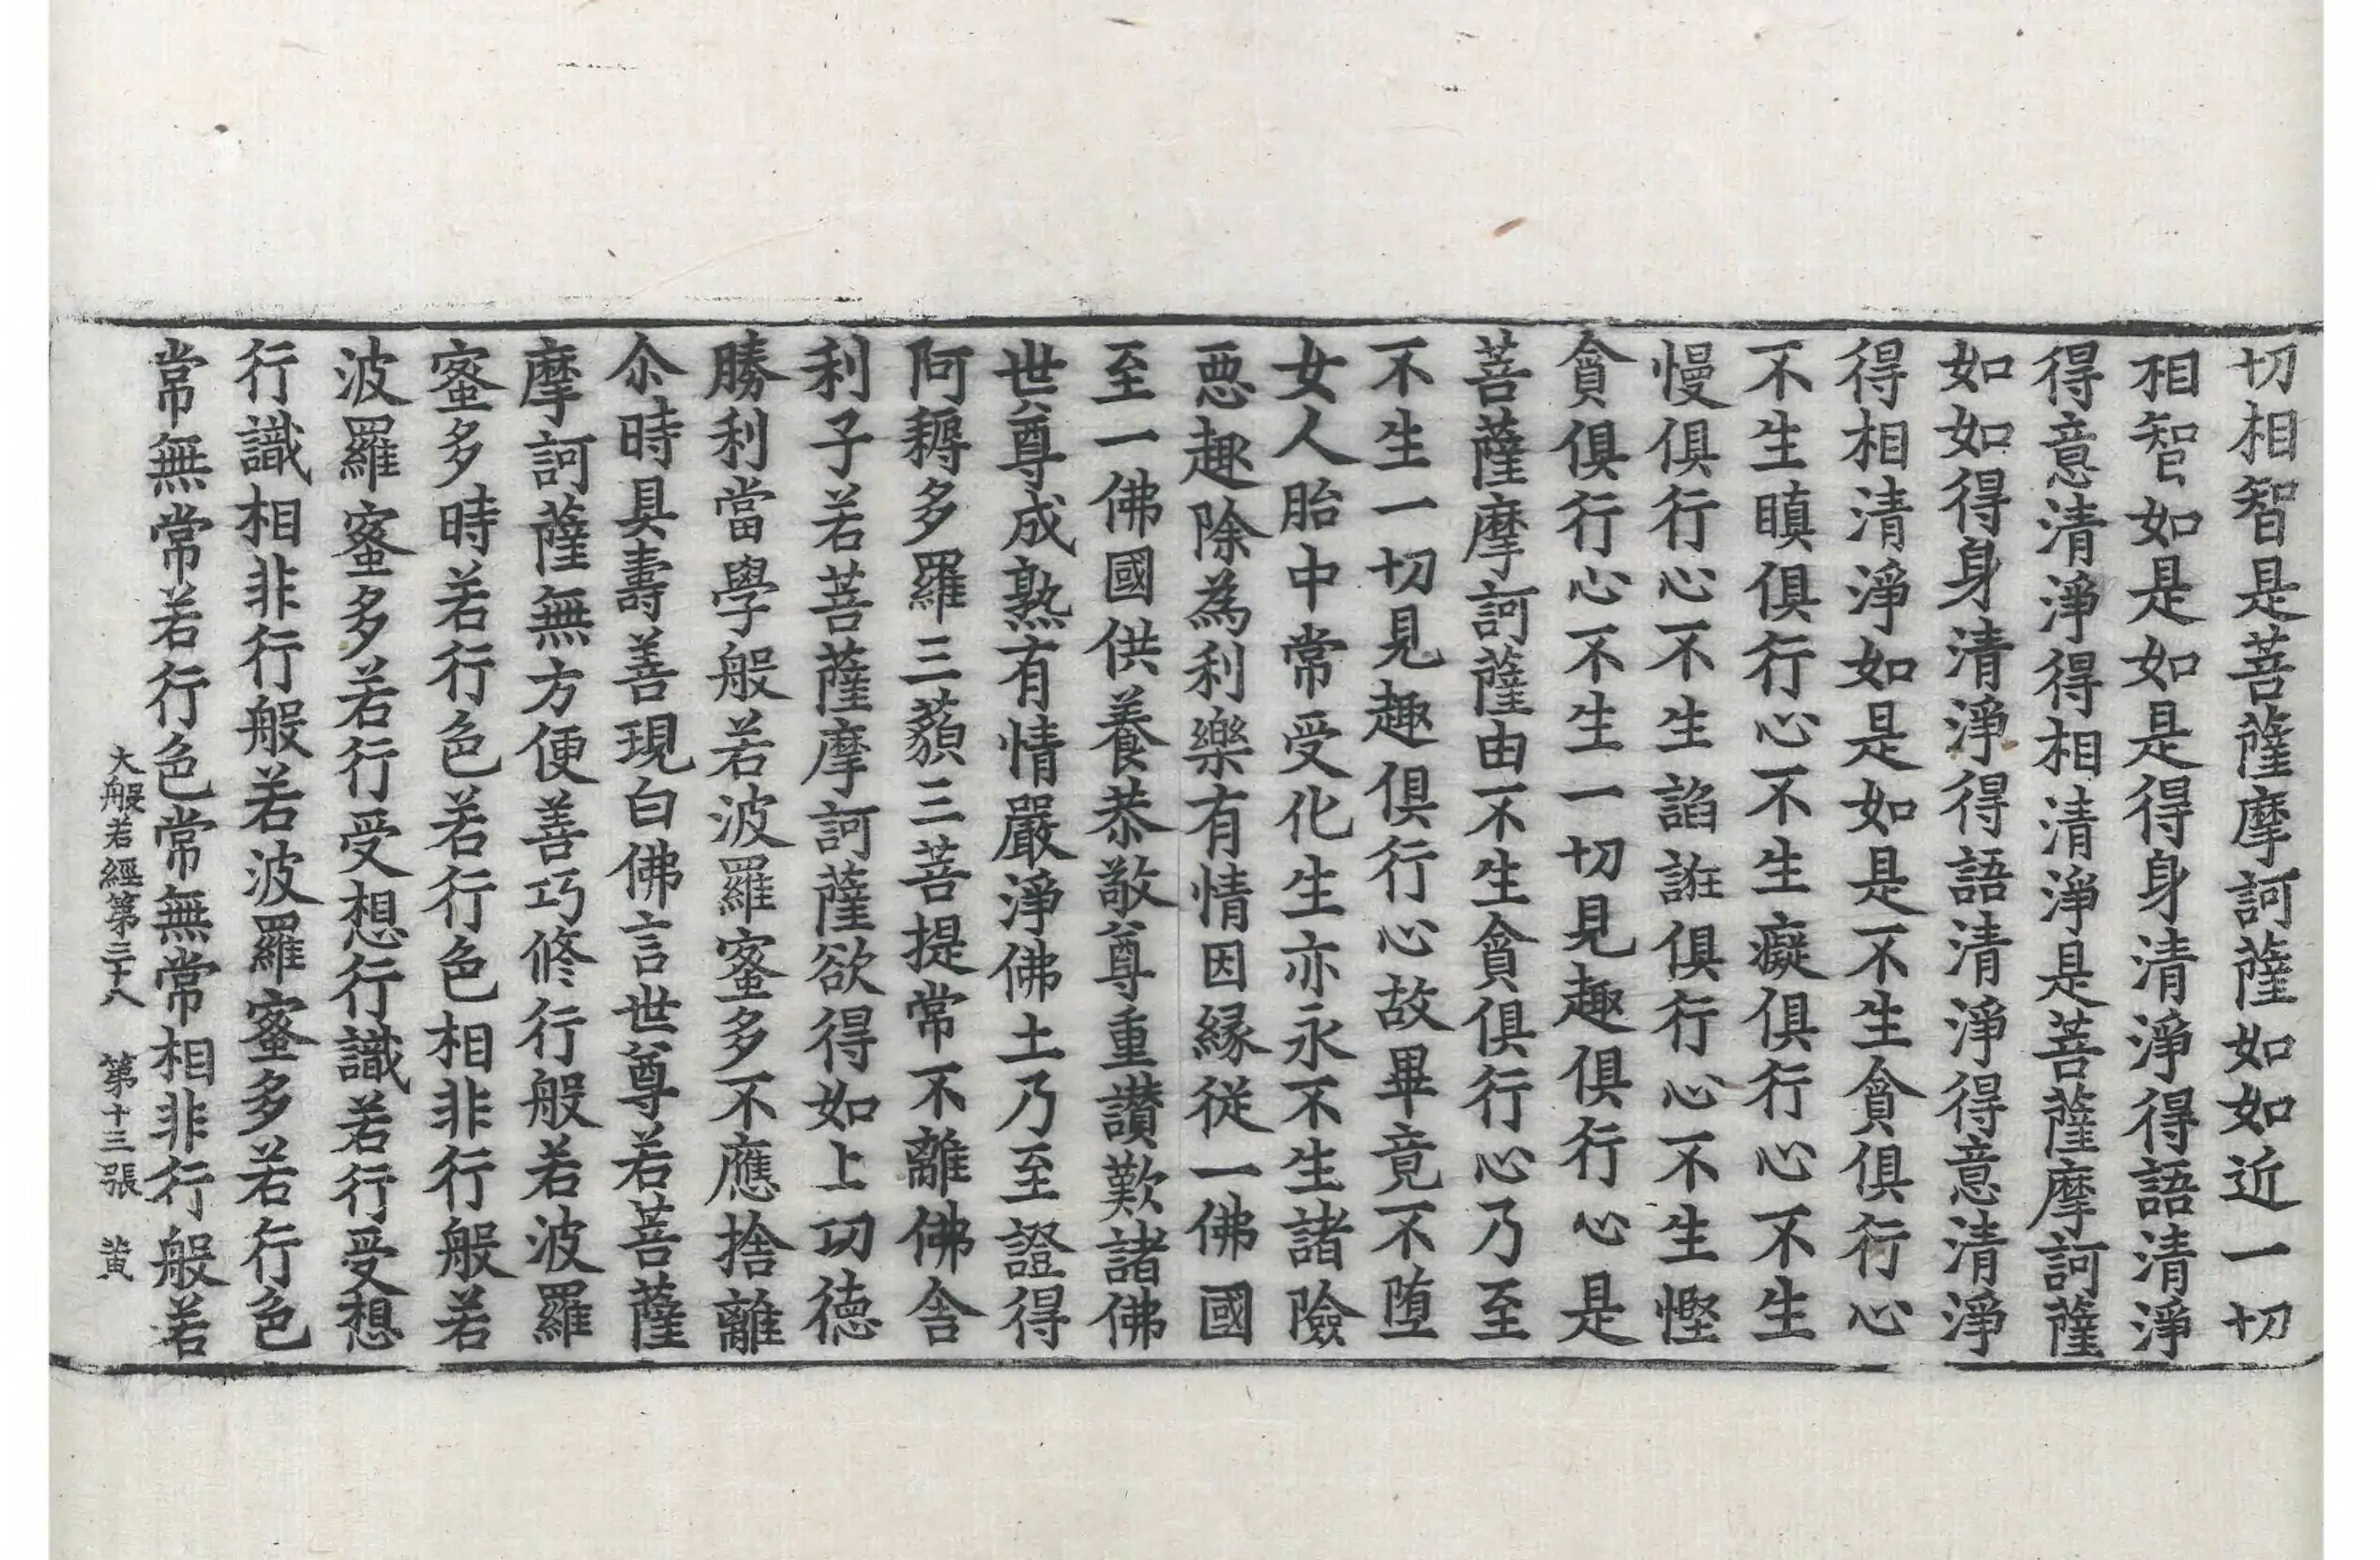 切相智是菩薩摩訶薩如如近一切
相智如是如是得身清淨得語清淨
得意清淨得相清淨是菩薩摩訶薩
如如得身清淨得語清淨得意清淨
得相清淨如是如是不生貪俱行心
不生瞋俱行心不生癡俱行心不生
慢俱行心不生諂誑俱行心不生慳
貪俱行心不生一切見趣俱行心是
菩薩摩訶薩由不生貪俱行心乃至
不生一切見趣俱行心故畢竟不堕
女人胎中常受化生亦永不生諸險
惡趣除為利樂有情因縁従一佛國
至一佛國供養恭敬尊重讃歎諸佛
世尊成熟有情嚴淨佛土乃至證得
阿耨多羅三藐三菩提常不離佛舍
利子若菩薩摩訶薩欲得如上功徳
勝利當學般若波羅蜜多不應捨離
尒時具壽善現白佛言世尊若菩薩
摩訶薩無方便善巧修行般若波羅
蜜多時若行色若行色相非行般若
波羅蜜多若行受想行識若行受想
行識相非行般若波羅蜜多若行色
常無常若行色常無常相非行般若
大般若經第三十八 第十三張 黄